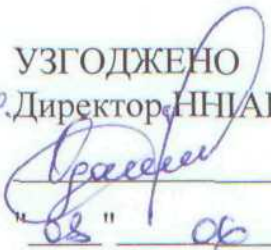 УЗГОДЖЕНО
Директор ННІАЕ
"08" 06